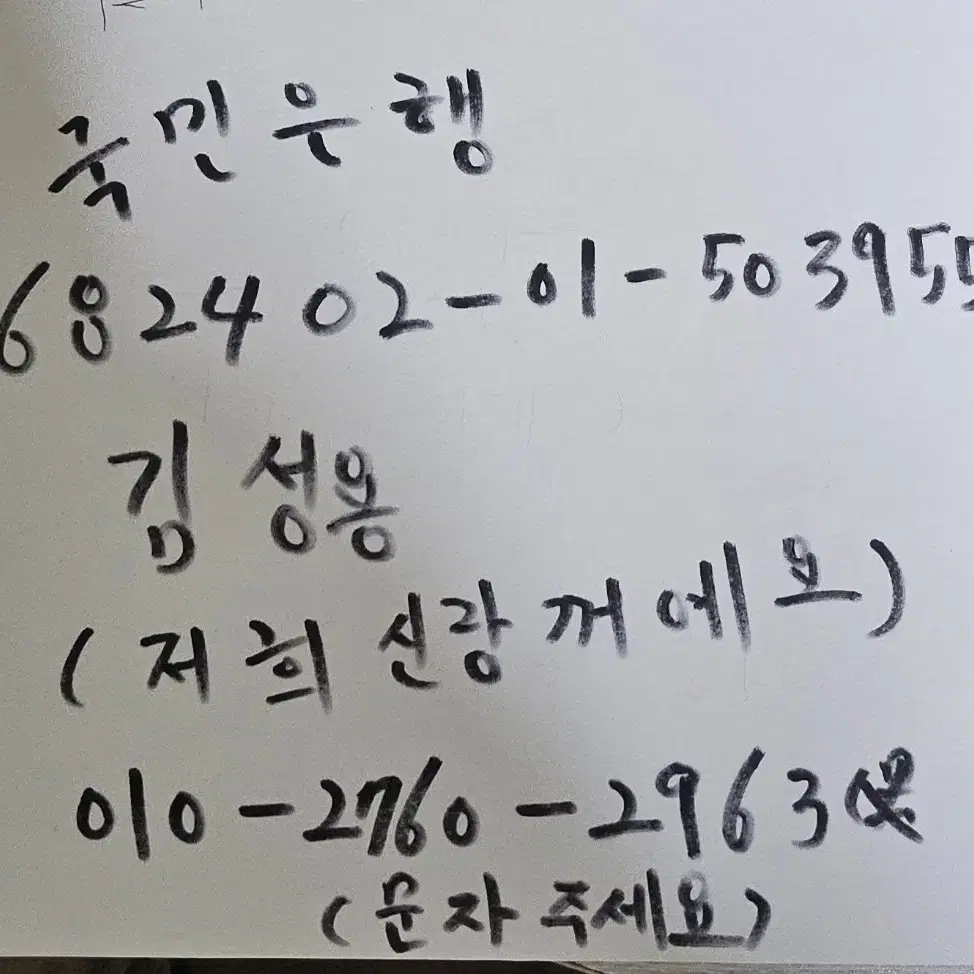 국민은행
682402-01-503955
김성용
(저희 신랑꺼에요)
010-2760-2963
(문자주세요)